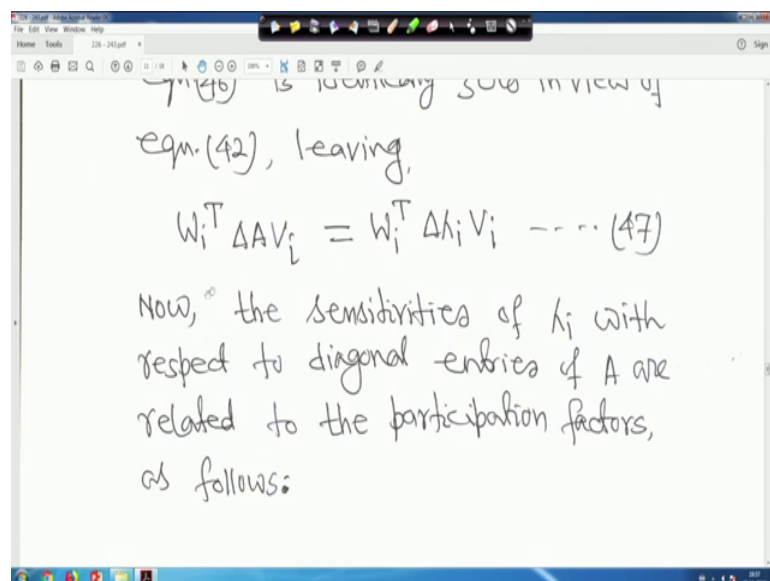 228 - 243.pdf - Adobe Acrobat Reader DC
File Edit View Window Help
Home Tools 228 - 243.pdf × Sign
11 / 18
Eqn.(46) is identically zero in view of
eqn.(42), leaving,
Wᵢᵀ ΔA Vᵢ = Wᵢᵀ Δλᵢ Vᵢ ---- (47)
Now, the sensitivities of λᵢ with
respect to diagonal entries of A are
related to the participation factors,
as follows: